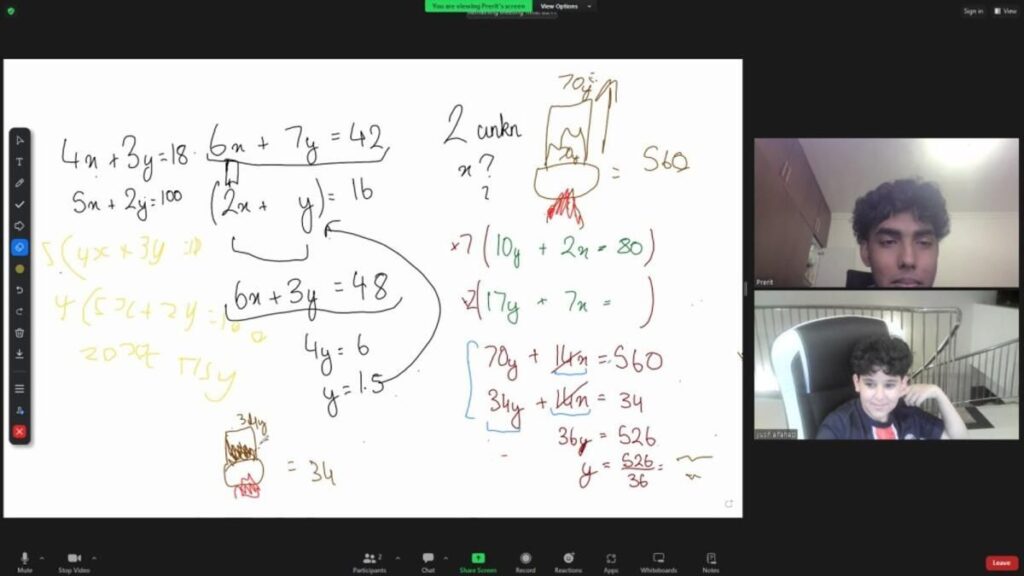 You are viewing Prerit's screen
View Options
Sign in
View
4x + 3y = 18
5x + 2y = 100
6x + 7y = 42
(2x + y) = 16
6x + 3y = 48
4y = 6
y = 1.5
5(4x + 3y = 18
4(5x + 2y = 100
34y
= 34
2 unkn
x?
?
70y
70y
= 560
x7 (10y + 2x = 80)
x2 (17y + 7x = )
70y + 14x = 560
34y + 14x = 34
36y = 526
y = 526/36 =
T
Prerit
yusif afahad
Mute
Stop Video
Participants
2
Chat
Share Screen
Record
Reactions
Apps
Whiteboards
Notes
Leave